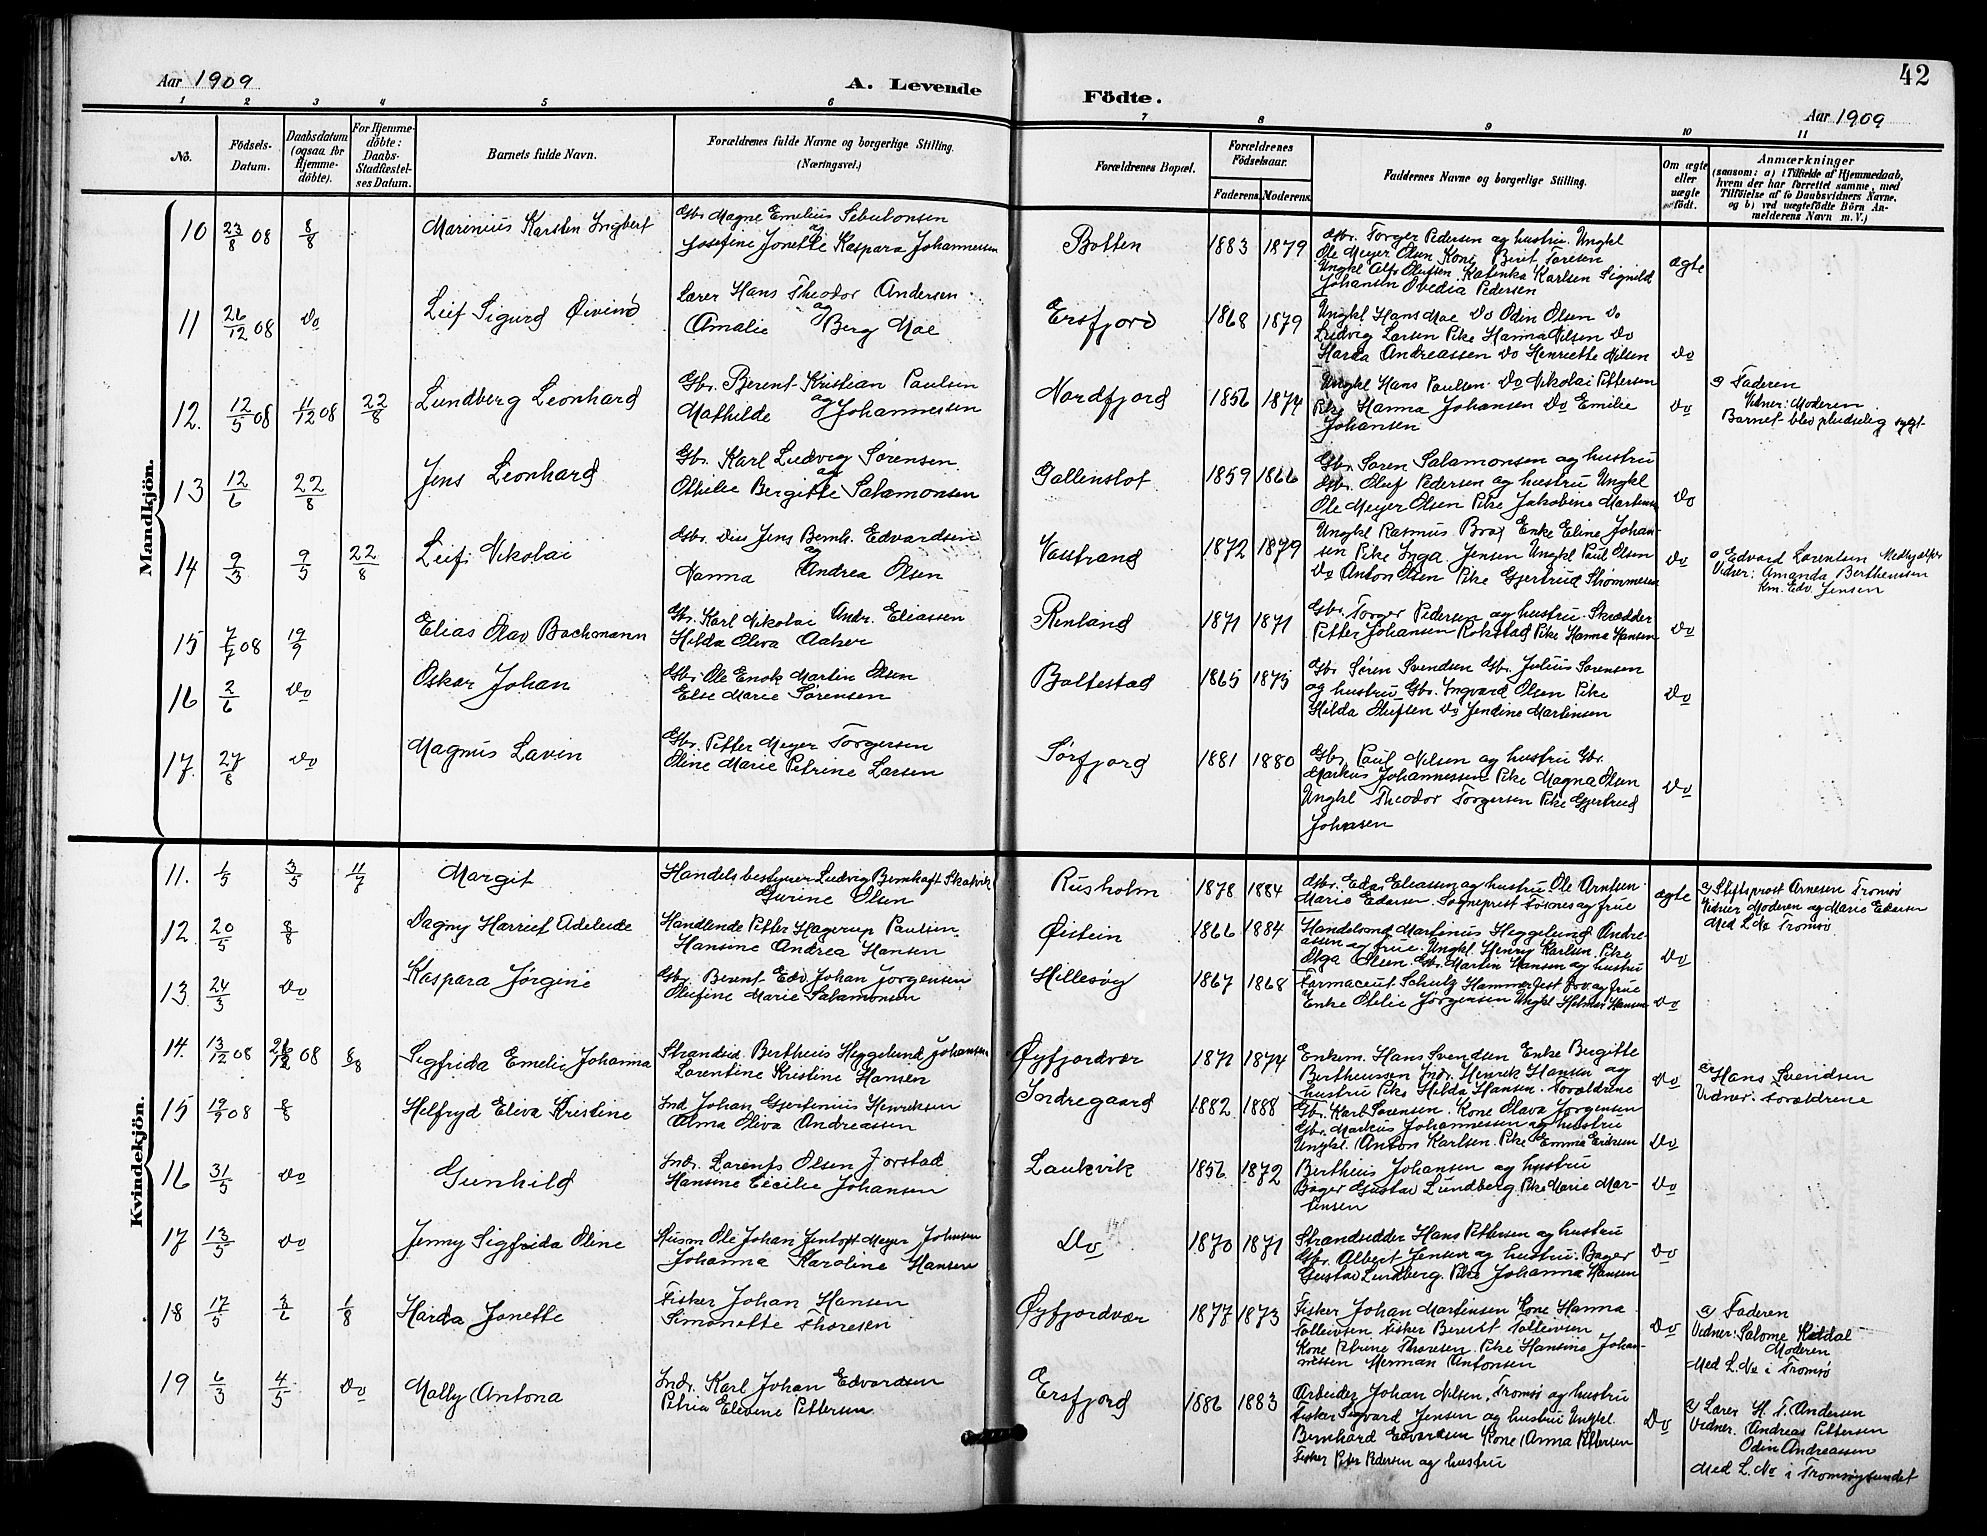 42
Aar 1909
A. Levende
Födte.
Aar 1909
1 2 3 4 5 6 7 8 9 10 11
No.
Födsels-
Datum.
Daabsdatum
(ogsaa for
Hjemme-
döbte).
For Hjemme-
döbte:
Daabs-
Stadfæstel-
ses Datum.
Barnets fulde Navn.
Forældrenes fulde Navne og borgerlige Stilling.
(Næringsvei.)
Forældrenes Bopæl.
Forældrenes
Födselsaar.
Faderens. Moderens.
Faddernes Navne og borgerlige Stilling.
Om ægte
eller
uægte
födt.
Anmærkninger
(saasom: a) i Tilfælde af Hjemmedaab,
hvem der har forrettet samme, med
Tilföielse af to Daabsvidners Navne,
og b) ved uægtefödte Börn An-
melderens Navn m. V.)
Mandkjön.
10 23/8 08 8/8 Marinius Karsten Ingbert
Gbr Magne Emelius Sibulonsen
og
Josefine Jonette Kaspara Johannessen
Botten 1883 1879
Gbr. Torger Pedersen og hustru. Ungkl
Ole Meyer Olsen Kone Berit Toresen
Ungkl Alfr Olufsen. Katinka Karlsen Signild
Johansen Ovedia Pedersen
ægte
11 26/12 08 Do Leif Sigurd Øivind
Lærer Hans Theodor Andersen
og
Amalie Berg Moe
Ersfjord 1868 1879
Ungkl Hans Moe Do Odin Olsen Do
Ludvig Larsen Pike Hanna Nilsen Do
Harda Andreassen Do Henriette Nilsen
Do
12. 12/5 08 11/12 08 22/8 Lundberg Leonhard
Gbr. Berent Kristian Paulsen
og
Mathilde Johannessen
Nordfjord 1856 1874
Ungkl Hans Paulsen. Do Nikolai Pettersen
Pike Hanna Johansen Do Emilie
Johansen
Do
a) Faderen
Vidner: Moderen
Barnet blev pludselig sygt.
13 12/6 22/8 Jens Leonhard
Gbr. Karl Ludvig Sørensen
og
Othelie Bergitte Salamonsen
Gallenslot 1859 1866
Gbr Soren Salamonsen og hustru
Gbr. Oluf Pedersen og hustru Ungkl
Ole Meyer Olsen Pike Jakobine Martinsen
Do
14 9/3 9/5 22/8 Leif Nikolai
Gbr. Jens Bernh. Edvardsen
og
Nanna Andrea Olsen
Vasstrand 1872 1879
Ungkl Rasmus Brox Enke Eline Johan-
sen Pike Inga Jensen Ungkl Paul Olsen
Do Anton Olsen Pike Gjertrud Strømmesen
Do
Edvard Lorentsen Medhjælper
Vidner: Amanda Berthensen
Km. Edv. Jensen
15 7/7 08 19/9 Elias Olav Bachmann
Gbr. Karl Nikolai Andr. Eliassen
Hilda Oliva Aaker
Renland 1871 1871
Gbr. Torger Pedersen og hustru. Skrædder
Petter Johansen Rokstad Pike Hanna Hansen
Do
16 2/6 Do Oskar Johan
Gbr. Ole Enok Martin Olsen
Else Marie Sørensen
Baltestad 1865 1875
Gbr Søren Svendsen Gbr. Julius Sørensen
og hustru Gbr. Ingvard Olsen Pike
Hilda Olufsen Do Jendine Martinsen
Do
17. 27/8 Do Magnus Lavin
Gbr. Petter Meyer Torgersen
Oline Marie Petrine Larsen
Sørfjord 1881 1880
Gbr. Paul Nilsen og hustru Gbr.
Markus Johannessen Pike Magna Olsen
Ungkl Theodor Torgersen Pike Gjertrud
Johnsen
Do
Kvindekjön.
11. 1/5 3/5 11/7 Margit
Handelsbestyrer Ludvig Bernhoft Skatvik
Gurine Olsen
Rusholm 1878 1884
Gbr. Edv. Eleassen og hustru. Ole Arntsen
Marie Edersen. Sogneprest Fosnes og frue
ægte
a) Stiftsprost Arnesen Tromsø
Vidner Moderen og Marie Edersen
Med L. No Tromsø
12. 20/5 8/8 Dagny Harriet Adeleide
Handlende Petter Hagerup Paulsen
Hansine Andrea Hansen
Øistein 1866 1884
Handelsmd Martinius Heggelund Andre-
assen og frue. Ungkl. Henry Karlsen Pike
Olga Olsen. Gbr. Martin Hansen og hustru
Do
13. 24/3 Do Kaspara Jørgine
Gbr Berent Edv Johan Jørgensen
Olufine Marie Salamonsen
Hillesøy 1867 1868
Farmaceut Schulz Hammerfest Prv. og frue
Enke Otelie Jørgensen Ungkl Helmer Hansen
Do
14. 13/12 08 26/12 08 8/8 Sigfrida Emelie Johanna
Strandsid. Bertheus Heggelund Johansen
Lorentine Kristine Hansen
Øyfjordvær 1871 1874
Enkem. Hans Svendsen Enke Bergitte
Bertheussen Indr. Henrik Hansen og
hustru Pike Hilda Hansen. forældrene
Do
a) Hans Svendsen
Vidner. forældrene
15 19/9 08 8/8 Helfryd Eliva Kristine
Ind Johan Gjertenius Henriksen
Alma Oliva Andreassen
Indregaard 1882 1888
Gbr. Karl Sørensen. Kone Olava Jørgensen
Gbr. Markus Johannessen og hustru
Ungkl. Anton Karlsen. Pike Emma Eriksen
Do
16 31/5 Do Gunhild
Indr. Lorents Olsen Jorstad
Hansine Cecilie Johansen
Laukvik 1856 1872
Bertheus Johansen og hustru
Bager Gustav Lundberg. Pike Marie Mar-
tinsen
Do
17 13/5 Do Jenny Sigfrida Oline
Husm Ole Johan Jentoft Meyer Johnsen
Johanna Karoline Hansen
Do 1870 1871
Strandsidder Hans Pettersen og hustru
Gbr. Albert Jensen og hustru. Bager
Gustav Lundberg. Pike Johanna Hansen
Do
18 17/5 2/6 1/8 Harda Jonette
Fisker Johan Hansen
Simonette Thoresen
Øyfjordvær 1877 1873
Fisker Johan Martinsen Kone Hanna
Tollevsen Fisker Berent Tollevsen
Kone Petrine Thoresen. Pike Hansine Johan-
nessen Herman Antonsen
Do
a) Faderen
Vidner: Salome Kvidal
Moderen
Med L. No i Tromsø
19 6/3 4/5 Do Mally Antona
Indr. Karl Johan Edvardsen
Petria Elevine Pettersen
Ersfjord 1886 1883
Arbeider Johan Nilsen, Tromsø og hustru
Fisker Sigvard Jensen og hustru Ungkl.
Bernhard Edvardsen Kone Anna Pettersen
Fisker Peter Pedersen og hustru
Do
a) Lærer H. T. Andersen
Vidner. Andreas Pettersen
Odin Andreassen
Med L. No i Tromsøysundet